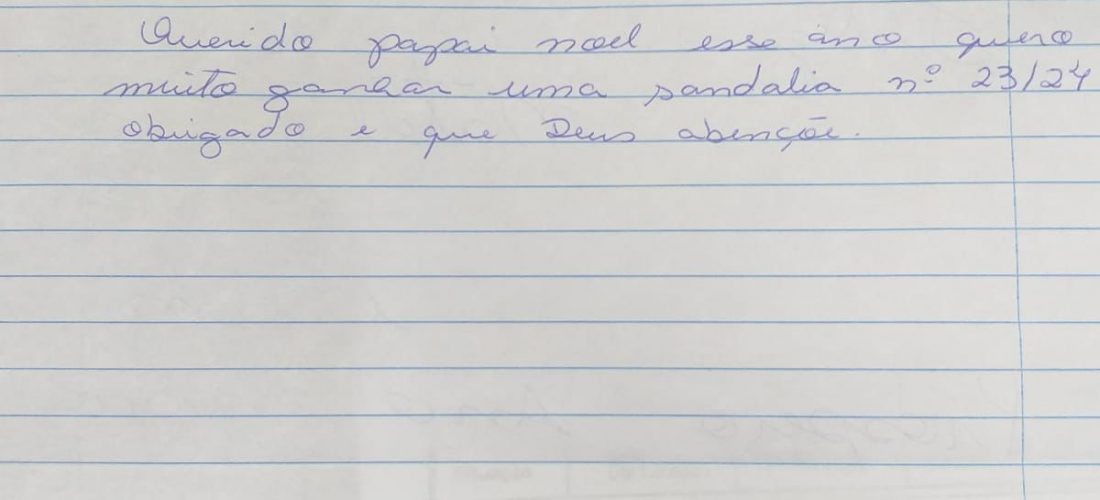 Querido papai noel esse ano quero
muito ganhar uma sandalia nº 23/24
obrigado e que Deus abençõe.